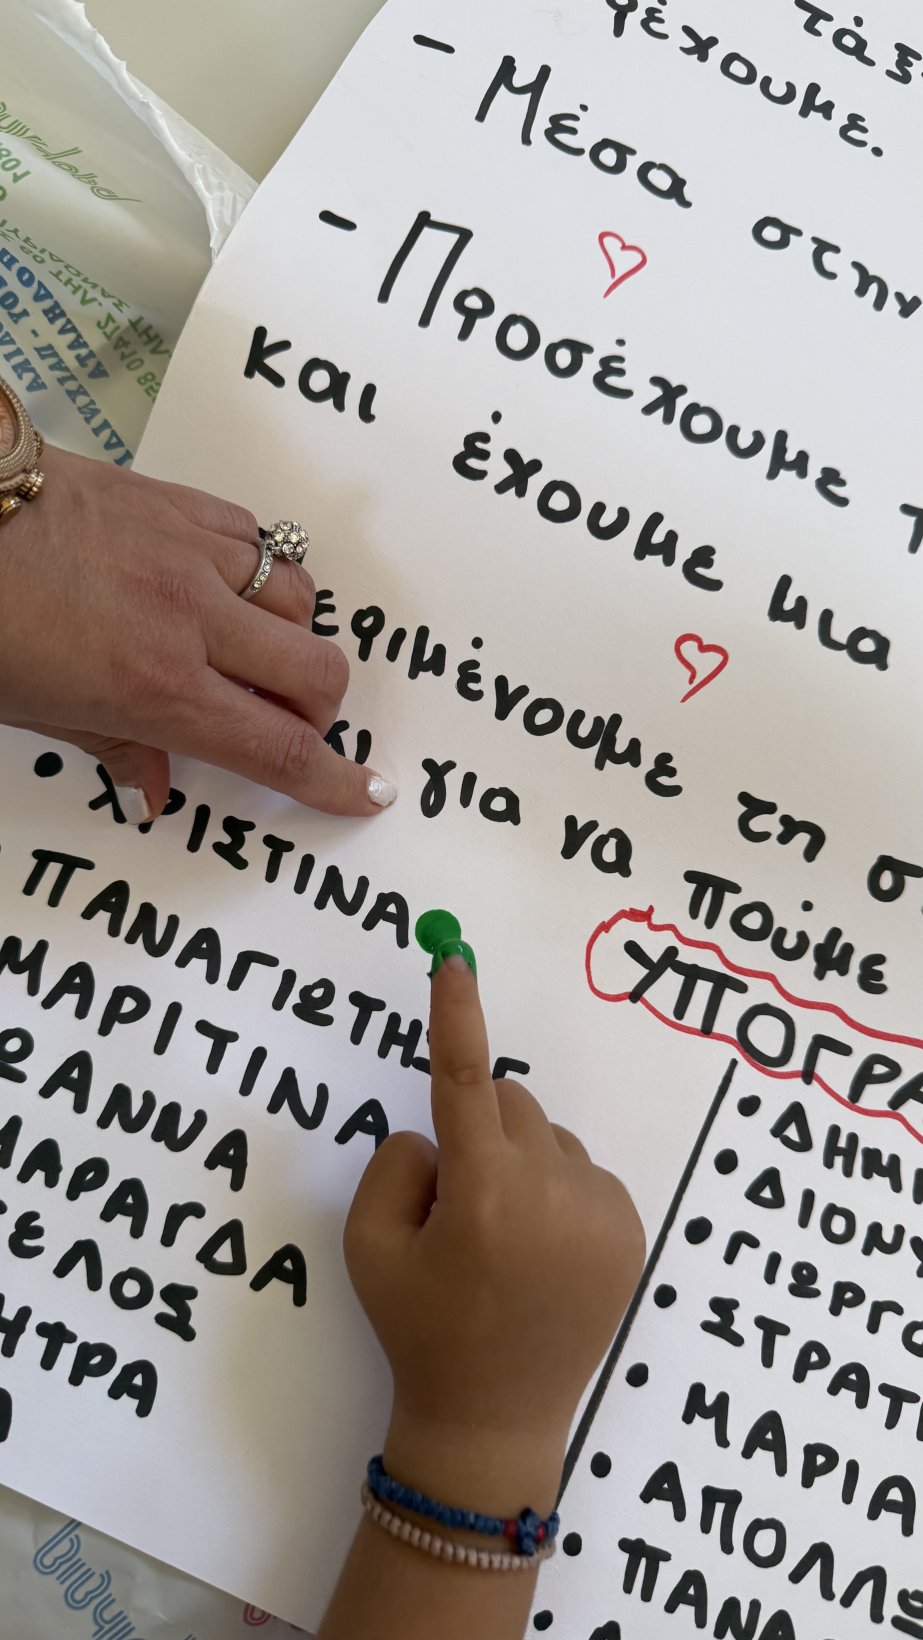 τάξ
ρέχουμε.
- Μέσα στην
- Προσέχουμε τ
και έχουμε μια
εριμένουμε τη σ
για να πούμε
ΥΠΟΓΡΑ
• ΧΡΙΣΤΙΝΑ
ΠΑΝΑΓΙΩΤΗΣ Γ
ΜΑΡΙΤΙΝΑ
ΩΑΝΝΑ
ΜΑΡΑΓΔΑ
ΕΛΟΣ
ΗΤΡΑ
• ΔΗΜ
• ΔΙΟΝΥ
• ΓΙΩΡΓΟ
• ΣΤΡΑΤ
• ΜΑΡΙΑ
• ΑΠΟΛΛΩ
• ΠΑΝΑ